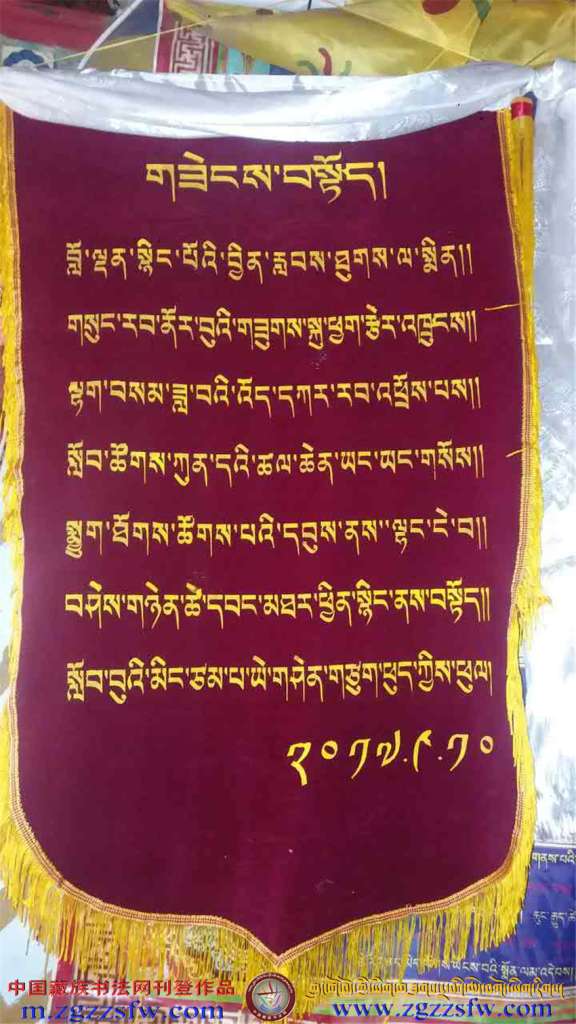 གཟེངས་བསྟོད།
བློ་ལྡན་སྙིང་པོའི་བྱིན་རླབས་ཐུགས་ལ་སྨིན།།
གསུང་རབ་ནོར་བུའི་གཟུགས་སྐུ་ཕྱག་རྩེར་འཁྲུངས།།
ལྷག་བསམ་ཟླ་བའི་འོད་དཀར་རབ་འཕྲོས་པས།།
སློབ་ཚོགས་ཀུན་དའི་ཚལ་ཆེན་ཡང་ཡང་གསོས།།
སྨྱུག་ཐོགས་ཚོགས་པའི་དབུས་ནས་ལྷང་ངེ་བ།།
བཤེས་གཉེན་ཚེ་དབང་མཐར་ཕྱིན་སྙིང་ནས་བསྟོད།།
སློབ་བུའི་མིང་ཙམ་པ་ཡེ་གཤེན་གཙུག་ཕུད་ཀྱིས་ཕུལ།
༢༠༡༧.༩.༡༠
གནས་པའི་
རྐང་རྒྱུད་ཚེ
中国藏族书法网刊登作品
m.zgzzsfw.com
www.zgzzsfw.com